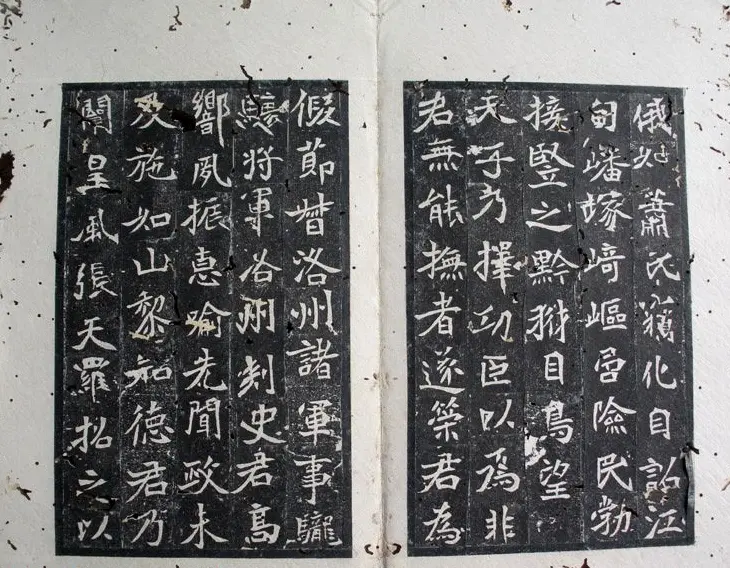 俄如蕭氏化自詔江
甸蟠塚崎嶇險民勃
接豎之黔目鳥望
天子乃擇功臣以為非
君無能撫者遂策君為
假節督洛州諸軍事龍
驤將軍洛州刾史君高
響夙振惠喻先聞政未
及施如山黎知德君乃
闡皇風張天羅招之以